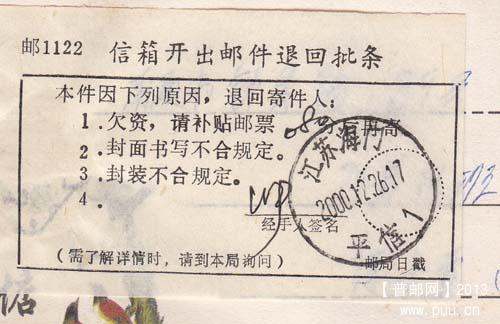 邮1122 信箱开出邮件退回批条
本件因下列原因，退回寄件人：
1.欠资，请补贴邮票 080 分后再寄
2.封面书写不合规定。
3.封装不合规定。
4.
经手人签名
(需了解详情时，请到本局询问)
邮局日戳
江苏海门
2000.12.26.17
平信 1
【普邮网】2013
www.puu.cn